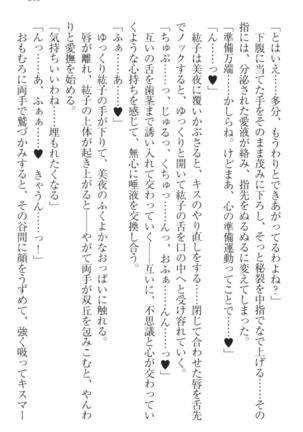 「とはいえ……多分、もうわりとできあがってるけど……」
下腹に当てた手をそのまま茂みに下ろし、そっと秘裂を中指でなで上げる……その
指には、分泌された愛液が絡み、指先をぬるぬるに変えてしまった。
「準備万端……かしらね。けどまあ、心の準備運動ってことで……♥」
紘子は美夜に覆いかぶさると、キスのやり直しをする……閉じて合わせた唇を舌先
でノックすると、ゆっくりと開いて紘子の舌を口の中へと受け容れていく。
「ちゅぷ……っ、じゅるっ、くちゅっ……ん、おふぁ……んん……っ♥」
「ふぁ……あ、ん……♥」
互いの舌を歯茎まで誘い入れて交わっていく――互いに、不思議と心が交わってい
くような心持ちを感じて、無心に唾液を交換し合う。
「ふぁ……あ……♥」
唇が離れ、紘子の上体が起き上がると――やがて両手が双丘を包みこむと、やんわ
ゆっくり紘子の手が下りて、美夜のふくよかなおっぱいに触れる。
りと愛撫を始める。
「気持ちいいわね……埋もれたくなる」
「え……あ、ふぁぁ……♥ きゃうん……っ!」
おもむろに両手で鷲づかみすると、その谷間に顔をうずめて、強く吸ってキスマー